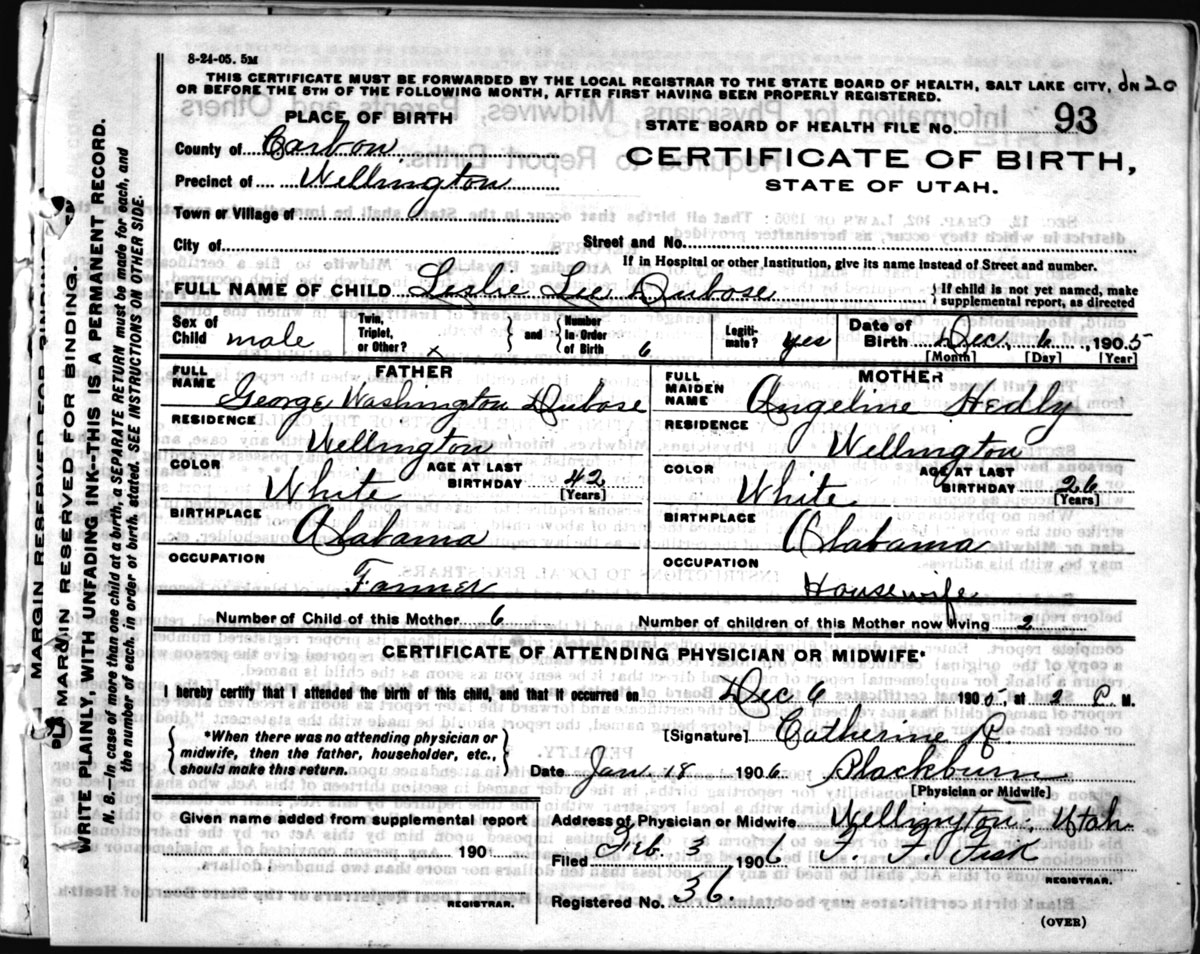 8-24-05. 5M
THIS CERTIFICATE MUST BE FORWARDED BY THE LOCAL REGISTRAR TO THE STATE BOARD OF HEALTH, SALT LAKE CITY, on 20
OR BEFORE THE 5TH OF THE FOLLOWING MONTH, AFTER FIRST HAVING BEEN PROPERLY REGISTERED.
PLACE OF BIRTH
STATE BOARD OF HEALTH FILE NO. 93
County of Carbon
CERTIFICATE OF BIRTH,
Precinct of Wellington
STATE OF UTAH.
Town or Village of
City of
Street and No.
If in Hospital or other Institution, give its name instead of Street and number.
FULL NAME OF CHILD Leslie Lee Dubose } If child is not yet named, make
supplemental report, as directed
Sex of Child male
Twin, Triplet, or Other? x } and { Number In-Order of Birth 6
Legiti-mate? yes
Date of Birth Dec. 6, 1905
[Month] [Day] [Year]
FATHER
FULL NAME George Washington Dubose
RESIDENCE Wellington
COLOR White
AGE AT LAST BIRTHDAY 42
[Years]
BIRTHPLACE Alabama
OCCUPATION Farmer
MOTHER
FULL MAIDEN NAME Angeline Hedly
RESIDENCE Wellington
COLOR White
AGE AT LAST BIRTHDAY 26
[Years]
BIRTHPLACE Alabama
OCCUPATION Housewife
Number of Child of this Mother 6
Number of children of this Mother now living 2
CERTIFICATE OF ATTENDING PHYSICIAN OR MIDWIFE*
I hereby certify that I attended the birth of this child, and that it occurred on Dec 6 1905, at 2 P. M.
{ *When there was no attending physician or
midwife, then the father, householder, etc.,
should make this return. }
[Signature] Catherine R
Date Jan 18 1906. Blackburn
[Physician or Midwife]
Given name added from supplemental report
190
REGISTRAR.
Address of Physician or Midwife Wellington, Utah.
Filed Feb 3 1906 F. F. Fisk
REGISTRAR.
Registered No. 36.
(OVER)
MARGIN RESERVED FOR BINDING
MARGIN RESERVED FOR BINDING.
WRITE PLAINLY, WITH UNFADING INK—THIS IS A PERMANENT RECORD.
N. B.—In case of more than one child at a birth, a SEPARATE RETURN must be made for each, and
the number of each, in order of birth, stated. SEE INSTRUCTIONS OTHER SIDE.